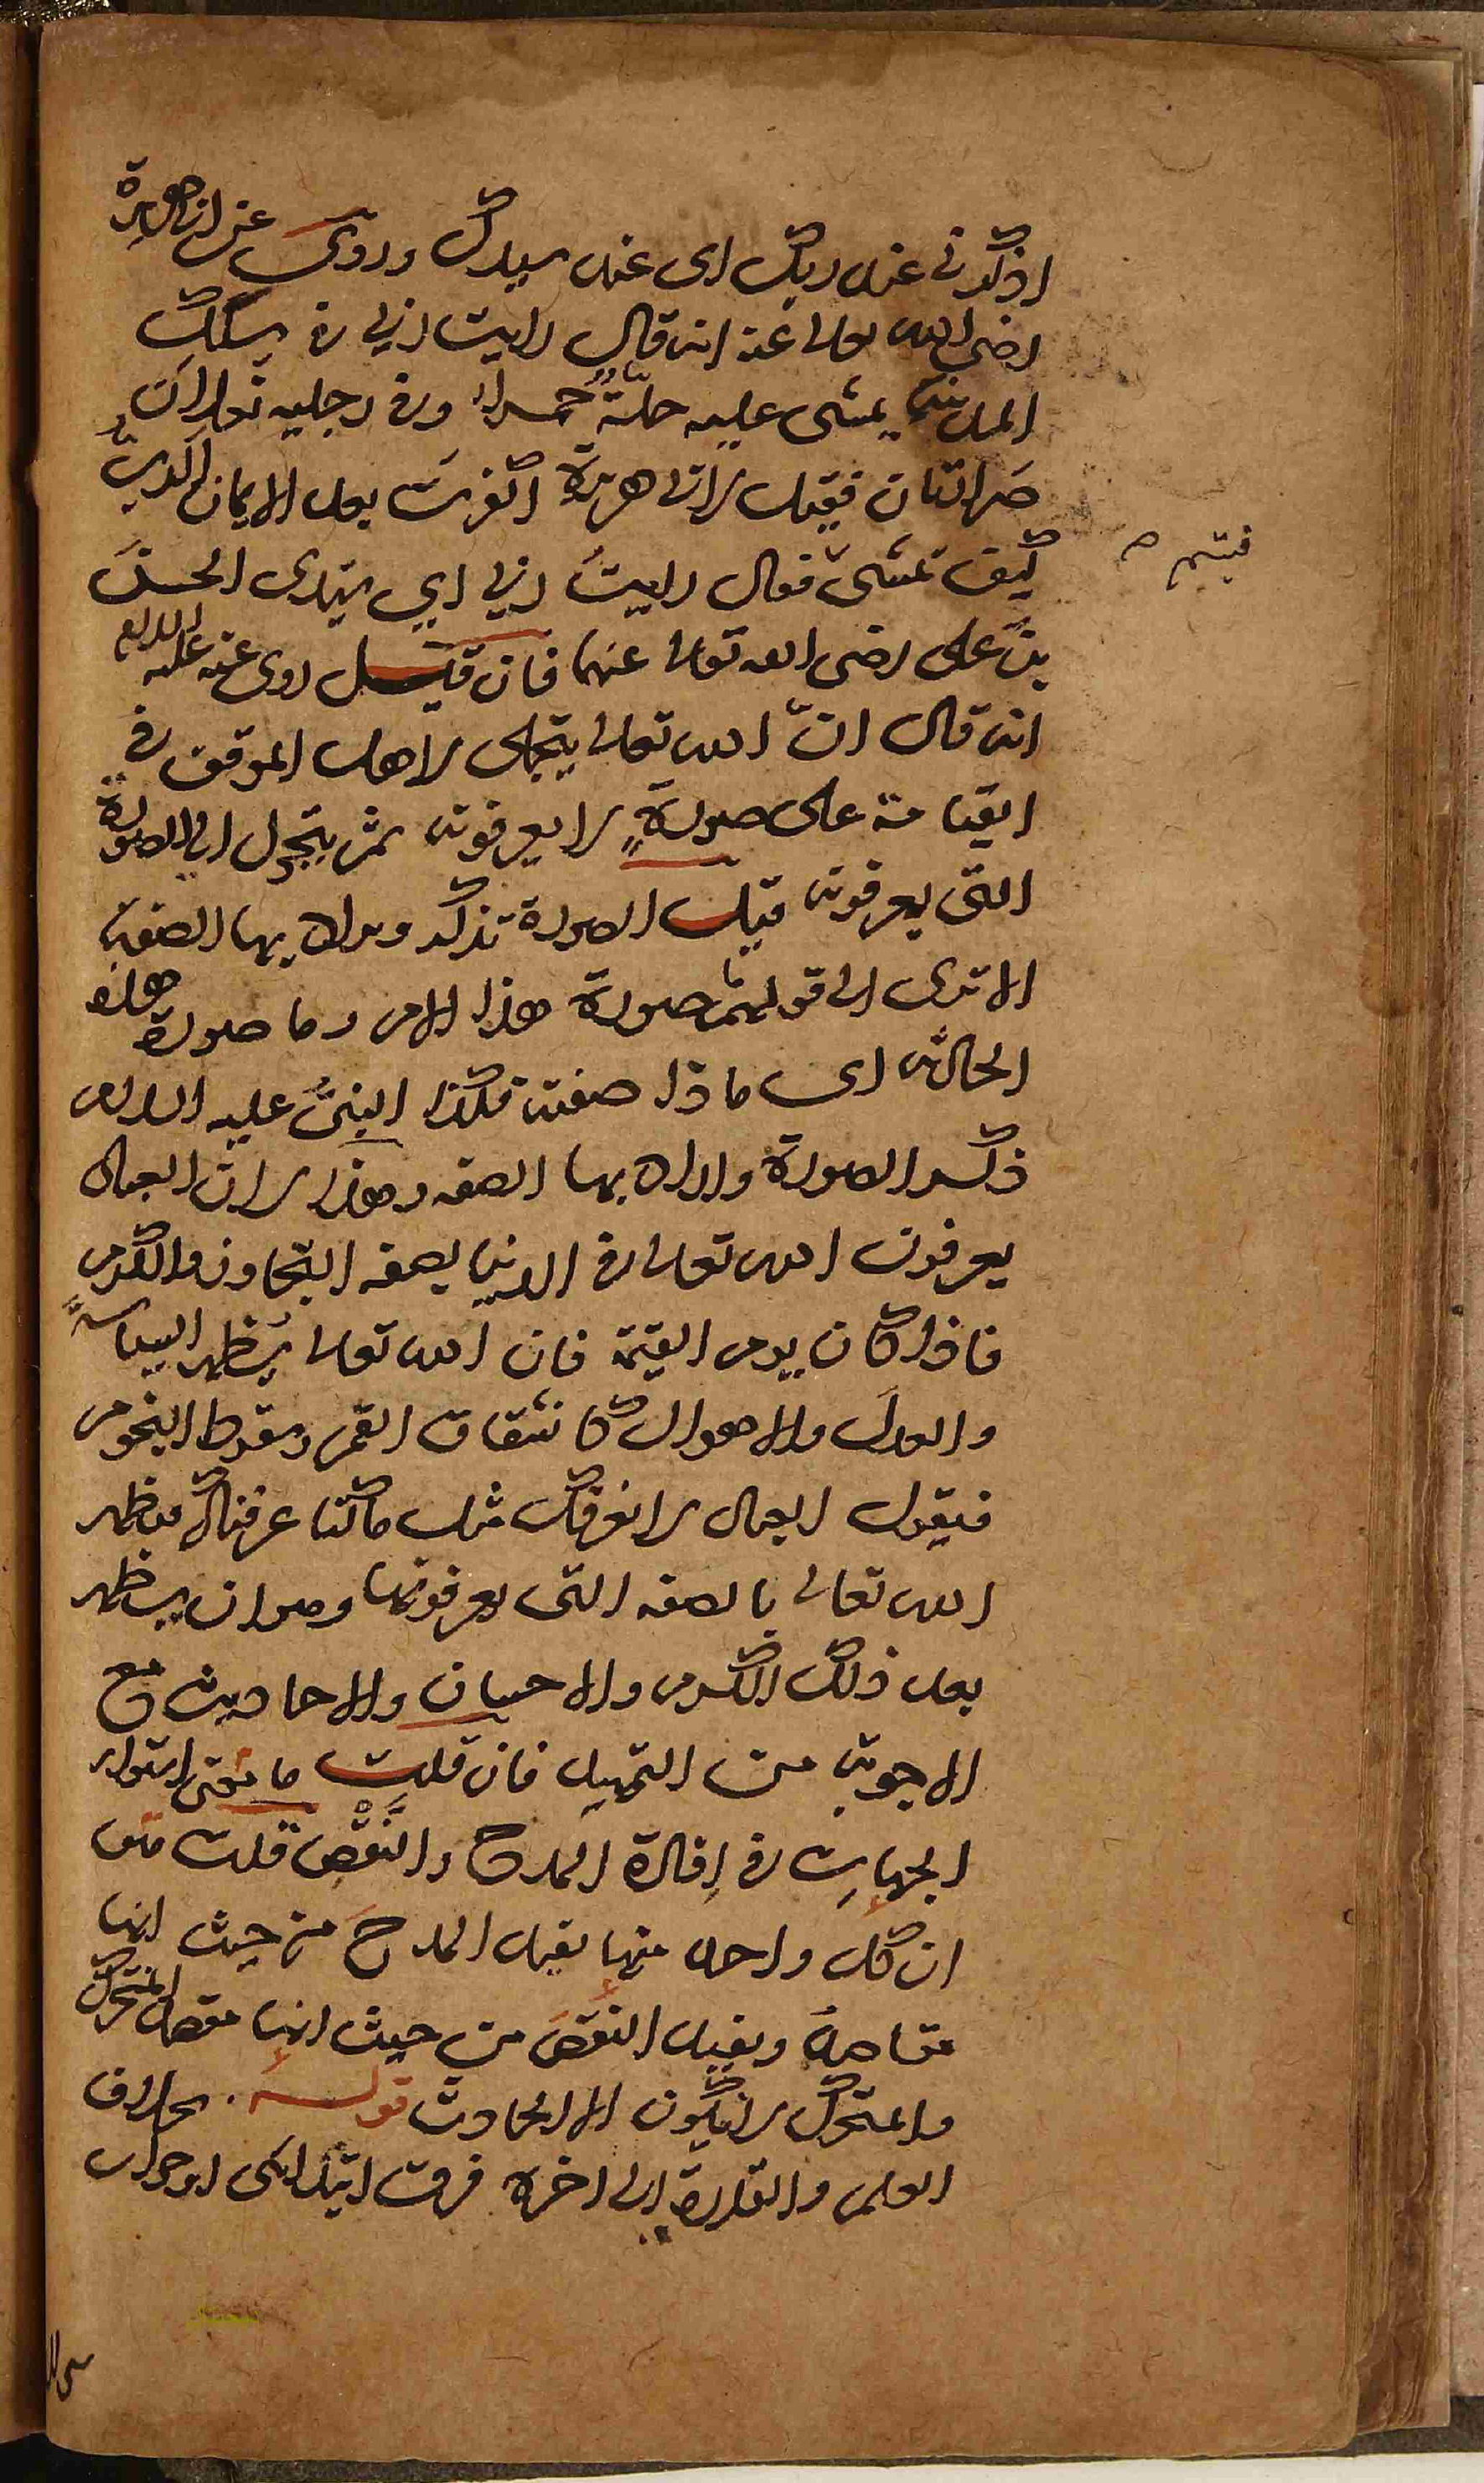 اذكرنى عند ربك اى عند سيدك وروى عن ابى هريرة
رضى الله تعالى عنه انه قال رايت ربى فى سكك
المدينة يمشى عليه حلة حمراء وفى رجليه نعلان
صراتان فقيل لابى هريرة اكفرت بعد الايمان
كيف تمشى فقال رايت ربى اى سيدى الحسن
بن على رضى الله تعالى عنهما فان قيل روى عنه عليه السلام
انه قال انّ الله تعالى يتجلى لاهل الموقف فى
القيامة على صورة لا يعرفونه ثم يتحول الى الصورة
التى يعرفونه قيل الصورة تذكر ويراد بها الصفة
الا ترى الى قولهم ما صورة هذا الامر وما صورة هذه
الحالة اى ماذا صفته فكذا النبىّ عليه السلام
ذكر الصورة واراد بها الصفة وهذا لان العباد
يعرفون الله تعالى فى الدنيا بصفة التجاوز والكرم
فاذا كان يوم القيمة فان الله تعالى يظهر السياسة
والعدل والاهوال كانشقاق القمر وسقوط النجوم
فيقول العباد لا نعرفك مثل ما كنا عرفناك فيظهر
الله تعالى بالصفة التى يعرفونها وهو ان يظهر
بعد ذلك الكرم والاحسان والاحاديث مع
الاجوبة من التمهيد فان قلت ما معنى استواء
الجهات فى افادة المدح والنقص قلت معناه
ان كل واحد منها يفيد المدح من حيث انها
مقاصد ويفيد النقص من حيث انها مقصد المتحرك
والمتحرك لا يكون الا الحادث قوله بخلاف
العلم والقدرة الى اخره فرق ابتدائى او جواب
فيتم